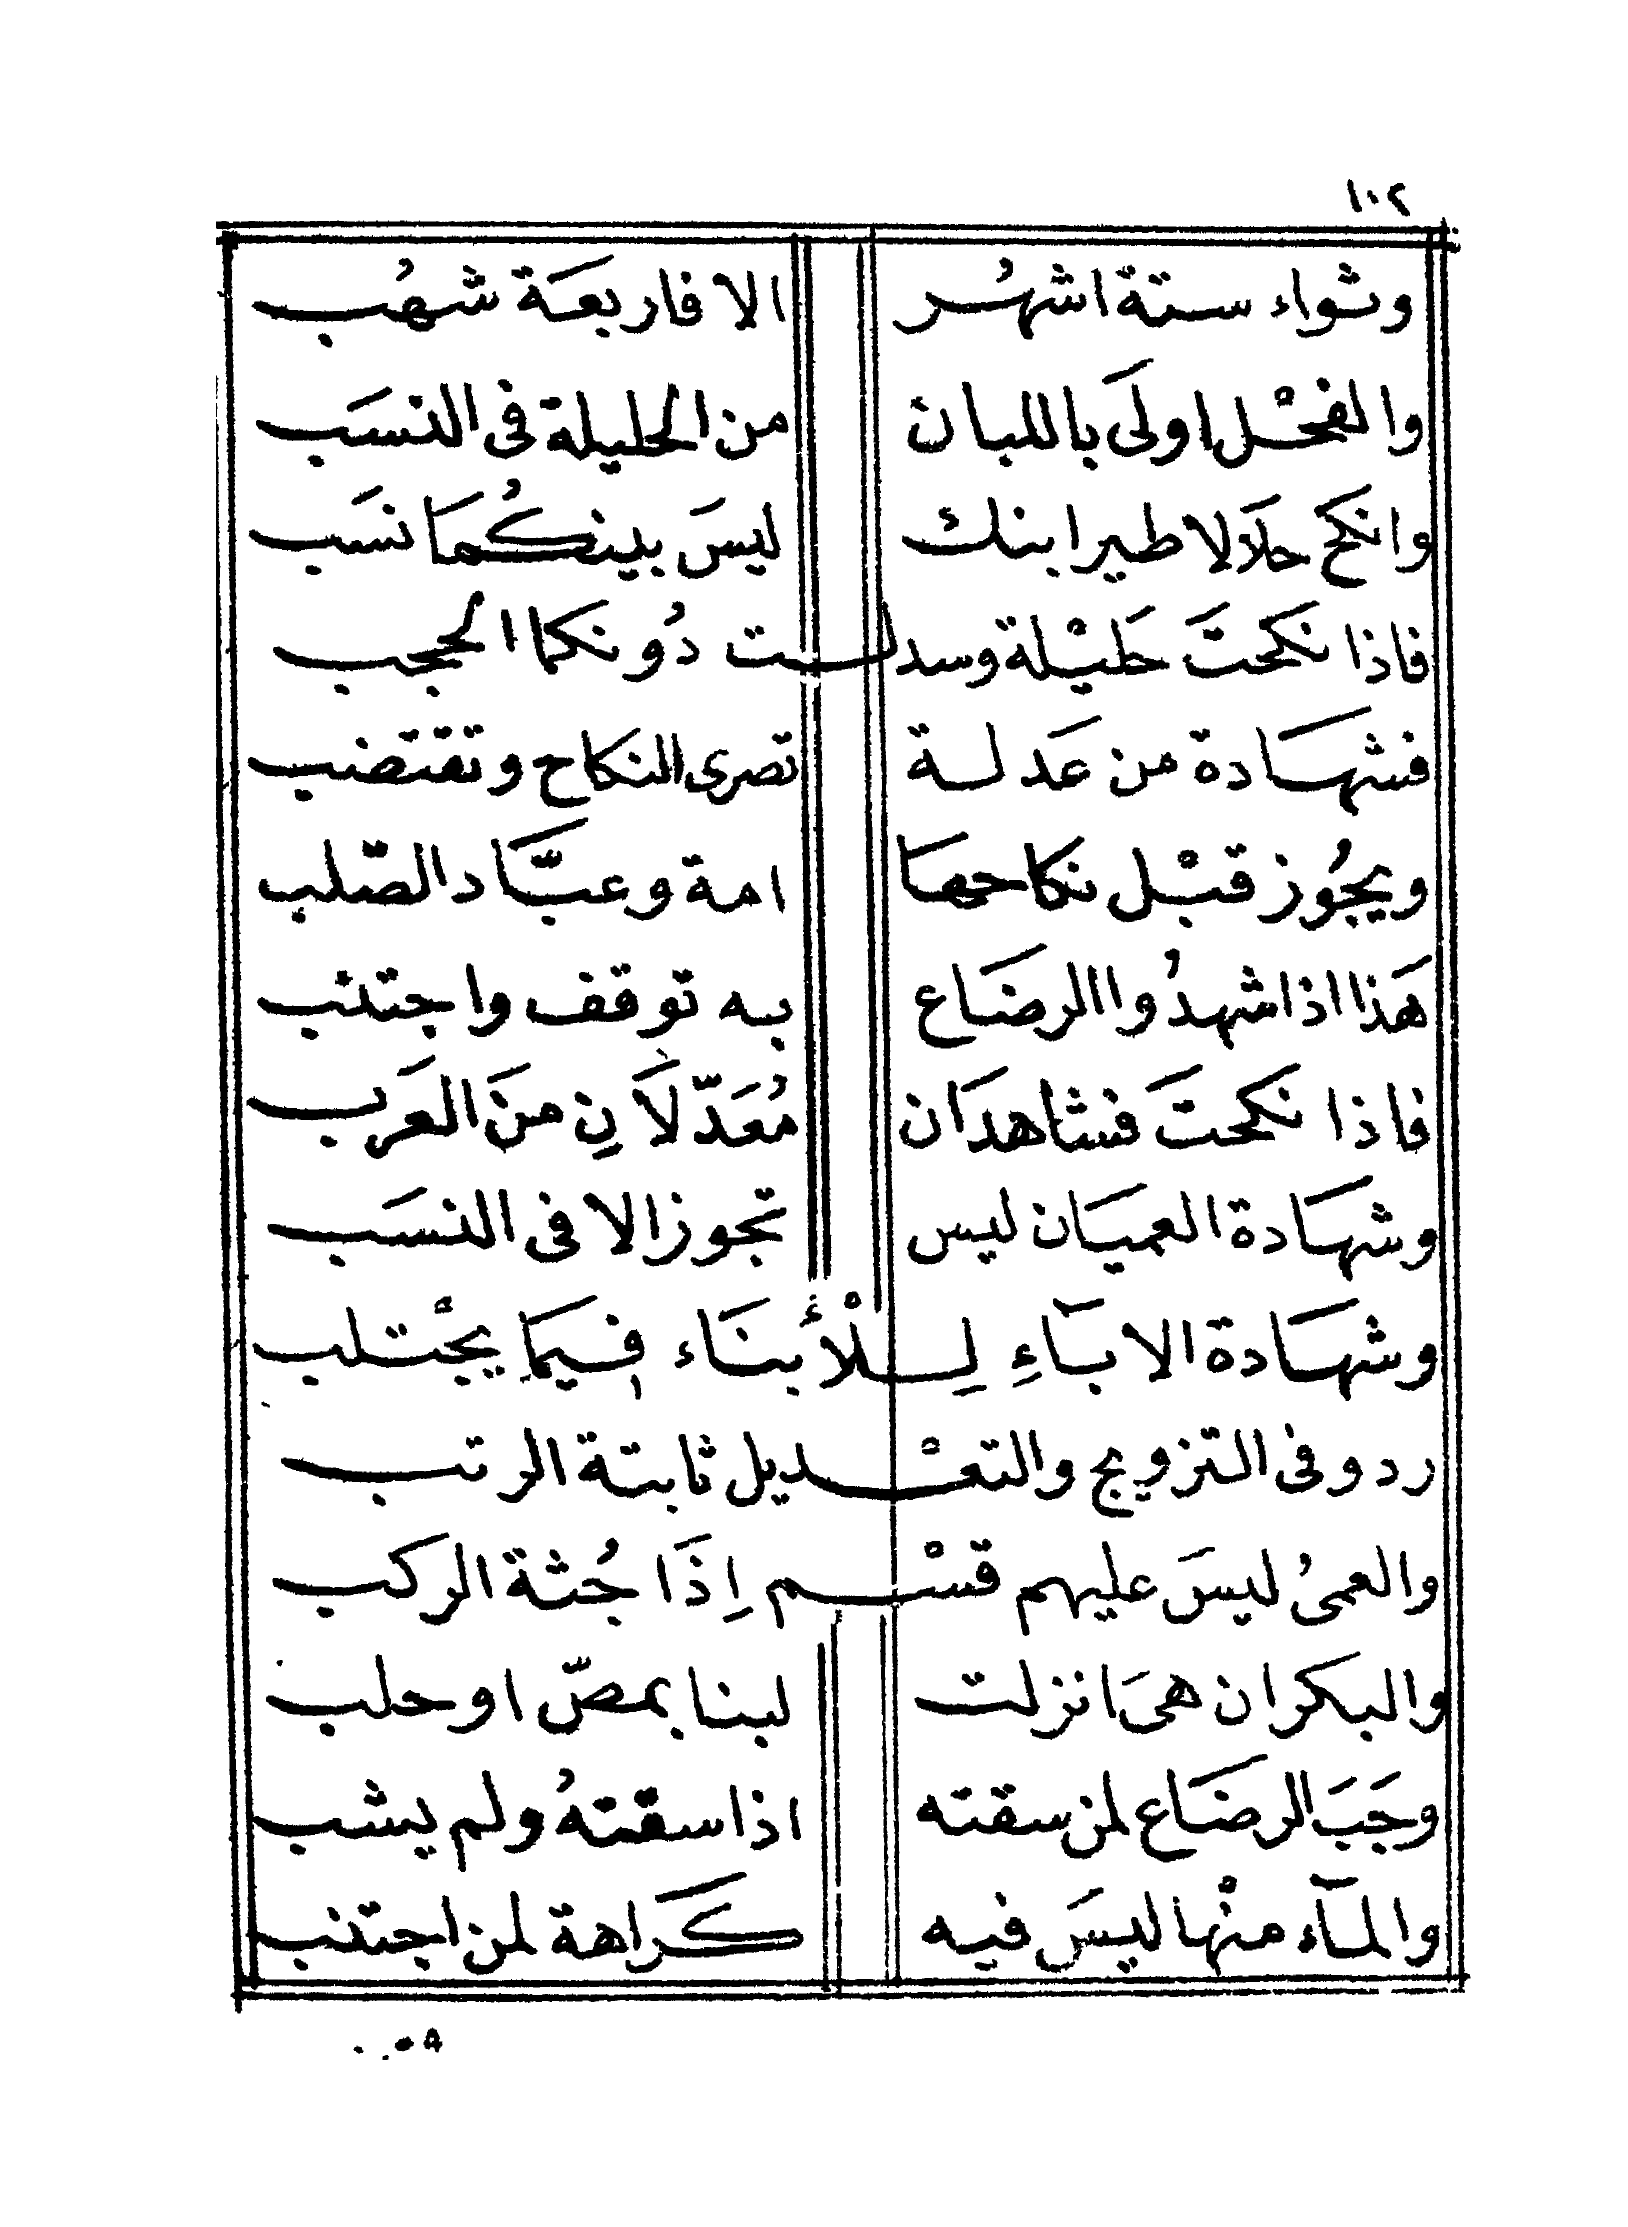 ١٠٢
وثواء ستة اشهُر الا فاربعَة شهُب
والفحْل اولَى باللبان من الحليلة فى النسَب
وانكح حلاَلا طيرا بنك ليسَ بينكُمَا نسَب
فاذا نكحتَ حَليْلة وسدلت دُونكما الحجب
فشهَادة من عَدلة تصرى النكاح وتقتضب
ويجُوز قبْل نكاحهَا امة وعبَّاد الصّلب
هَذا اذا شهدُوا الرضَاع به توقف واجتنب
فاذا نكحتَ فشاهدَان مُعَدّلاَنِ منَ العَرب
وشهَادة العميَان ليس تجوز الا فى النسَب
وشهَادة الابآءِ لِلْأبنَاء فيمَا يجْتلب
ردو فى التزويج والتعْديل ثابتة الرتب
والعمىُ ليسَ عليهم قسْم اِذَا جُثة الركب
والبكران هىَ انزلت لبنا بمصّ او حلب
وجَبَ الرضَاع لمن سقته اذا سقتهُ ولم يشب
والمآء منْها ليسَ فيه كَراهة لمن اجتنب